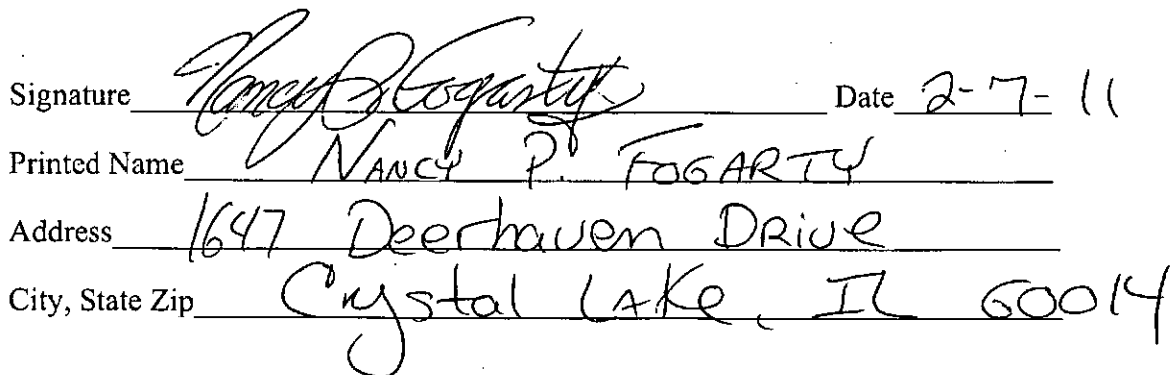 Signature Nancy P Fogarty Date 2-7-11
Printed Name NANCY P. FOGARTY
Address 1647 Deerhaven DRive
City, State Zip Crystal LAKe, IL 60014